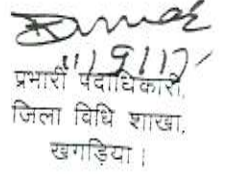 11/9/17
प्रभारी पदाधिकारी,
जिला विधि शाखा,
खगड़िया।